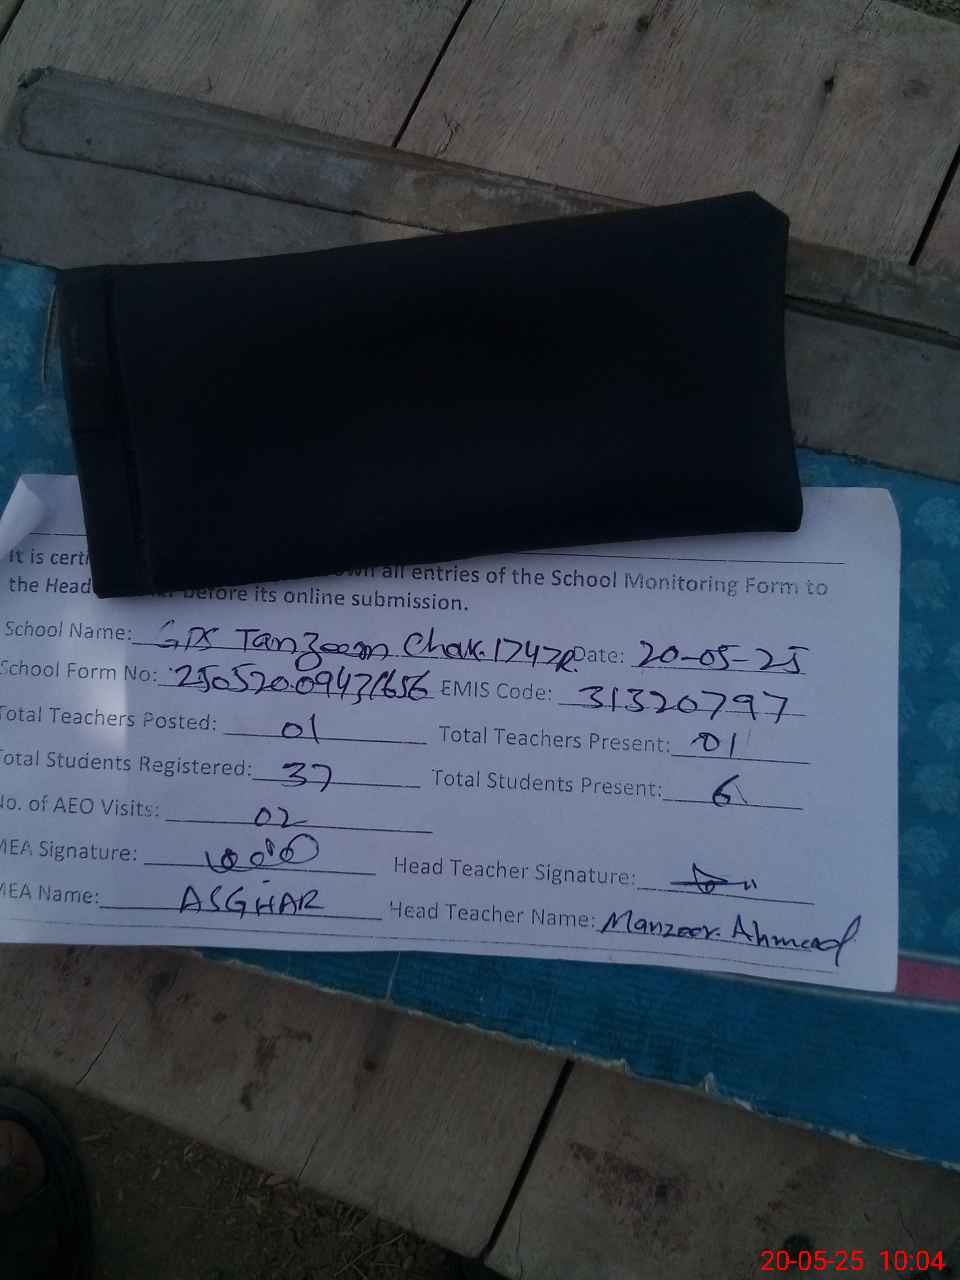 It is certi own all entries of the School Monitoring Form to
the Head before its online submission.
School Name: GPS Tanzeem Chak.1747R Date: 20-05-25
School Form No: 25052009431656 EMIS Code: 31320797
Total Teachers Posted: 01 Total Teachers Present: 01
Total Students Registered: 37 Total Students Present: 6
No. of AEO Visits: 02
MEA Signature: Head Teacher Signature:
MEA Name: ASGHAR Head Teacher Name: Manzoor Ahmad
20-05-25 10:04